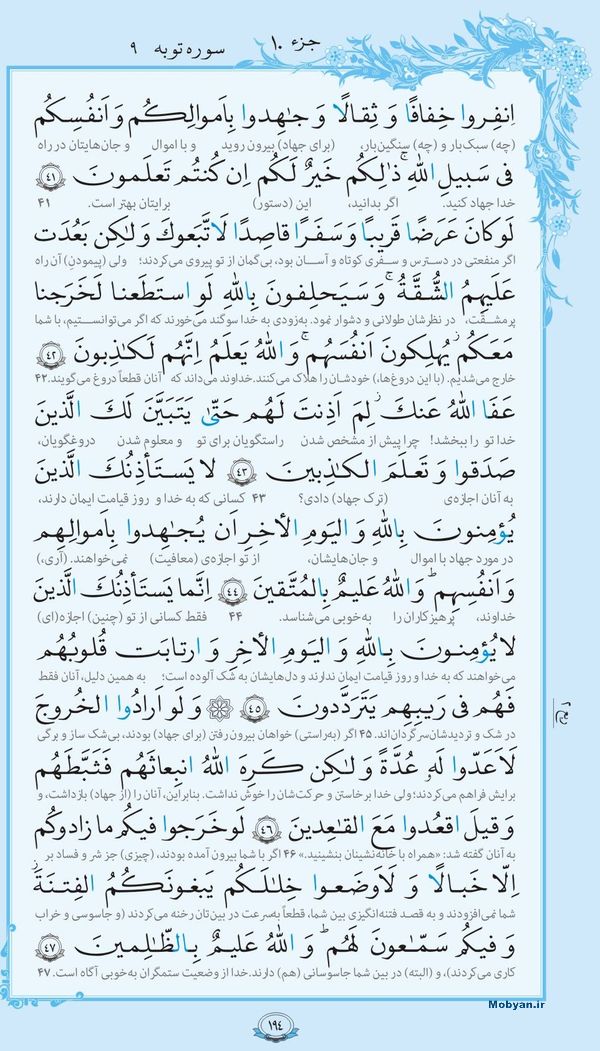 جزء ۱۰
سوره توبه ۹
اِنفِروا خِفافًا وَ ثِقالًا وَ جٰهِدوا بِاَموالِكُم وَ اَنفُسِكُم
(چه) سبک‌بار و (چه) سنگین‌بار، (برای جهاد) بیرون روید و با اموال و جان‌هایتان در راه
فى سَبيلِ اللهِ ۚ ذٰلِكُم خَيرٌ لَكُم اِن كُنتُم تَعلَمونَ ﴿۴۱﴾
خدا جهاد کنید. اگر بدانید، این (دستور) برایتان بهتر است. ۴۱
لَو كانَ عَرَضًا قَريبًا وَ سَفَرًا قاصِدًا لَاتَّبَعوكَ وَلٰكِن بَعُدَت
اگر منفعتی در دسترس و سفری کوتاه و آسان بود، بی‌گمان از تو پیروی می‌کردند؛ ولی (پیمودنِ) آن راه
عَلَيهِمُ الشُّقَّةُ ۚ وَ سَيَحلِفونَ بِاللهِ لَوِ استَطَعنا لَخَرَجنا
پرمشقّت، در نظرشان طولانی و دشوار نمود. به‌زودی به خدا سوگند می‌خورند که اگر می‌توانستیم، با شما
مَعَكُم ۚ يُهلِكونَ اَنفُسَهُم ۚ وَ اللهُ يَعلَمُ اِنَّهُم لَكٰذِبونَ ﴿۴۲﴾
خارج می‌شدیم. (با این دروغ‌ها،) خودشان را هلاک می‌کنند. خداوند می‌داند که آنان قطعاً دروغ می‌گویند. ۴۲
عَفَا اللهُ عَنكَ ۚ لِمَ اَذِنتَ لَهُم حَتّىٰ يَتَبَيَّنَ لَكَ الَّذينَ
خدا تو را ببخشد! چرا پیش از مشخص شدن راستگویان برای تو و معلوم شدن دروغگویان،
صَدَقوا وَ تَعلَمَ الكٰذِبينَ ﴿۴۳﴾ لا يَستَأذِنُكَ الَّذينَ
به آنان اجازه‌ی (ترک جهاد) دادی؟ ۴۳ کسانی که به خدا و روز قیامت ایمان دارند،
يُؤمِنونَ بِاللهِ وَ اليَومِ الأخِرِ اَن يُجٰهِدوا بِاَموالِهِم
در مورد جهاد با اموال و جان‌هایشان، از تو اجازه‌ی (معافیت) نمی‌خواهند. (آری،)
وَ اَنفُسِهِم ۗ وَ اللهُ عَليمٌ بِالمُتَّقينَ ﴿۴۴﴾ اِنَّما يَستَأذِنُكَ الَّذينَ
خداوند، پرهیزکاران را به‌خوبی می‌شناسد. ۴۴ فقط کسانی از تو (چنین) اجازه(ای)
لا يُؤمِنونَ بِاللهِ وَ اليَومِ الأخِرِ وَ ارتابَت قُلوبُهُم
می‌خواهند که به خدا و روز قیامت ایمان ندارند و دل‌هایشان به شک آلوده است؛ به همین دلیل، آنان فقط
فَهُم فى رَيبِهِم يَتَرَدَّدونَ ﴿۴۵﴾ وَ لَو اَرادُوا الخُروجَ
در شک و تردیدشان سرگردان‌اند. ۴۵ اگر (به‌راستی) خواهان بیرون رفتن (برای جهاد) بودند، بی‌شک ساز و برگی
لَاَعَدّوا لَهٗ عُدَّةً وَ لٰكِن كَرِهَ اللهُ انبِعاثَهُم فَثَبَّطَهُم
برایش فراهم می‌کردند؛ ولی خدا برخاستن و حرکتشان را خوش نداشت. بنابراین، آنان را (از جهاد) بازداشت، و
وَ قيلَ اقعُدوا مَعَ القٰعِدينَ ﴿۴۶﴾ لَو خَرَجوا فيكُم ما زادوكُم
به آنان گفته شد: «همراه با خانه‌نشینان بنشینید.» ۴۶ اگر با شما بیرون آمده بودند، (چیزی) جز شر و فساد بر
اِلّا خَبالًا وَ لَاَوضَعوا خِلٰلَكُم يَبغونَكُمُ الفِتنَةَ ۚ
شما نمی‌افزودند و به قصد فتنه‌انگیزی بین شما، قطعاً به‌سرعت در بین‌تان رخنه می‌کردند (و جاسوسی و خراب
وَ فيكُم سَمّٰعونَ لَهُم ۗ وَ اللهُ عَليمٌ بِالظّٰلِمينَ ﴿۴۷﴾
کاری می‌کردند)، و (البته) در بین شما جاسوسانی (هم) دارند. خدا از وضعیت ستمگران به‌خوبی آگاه است. ۴۷
۱۹۴
Mobyan.ir